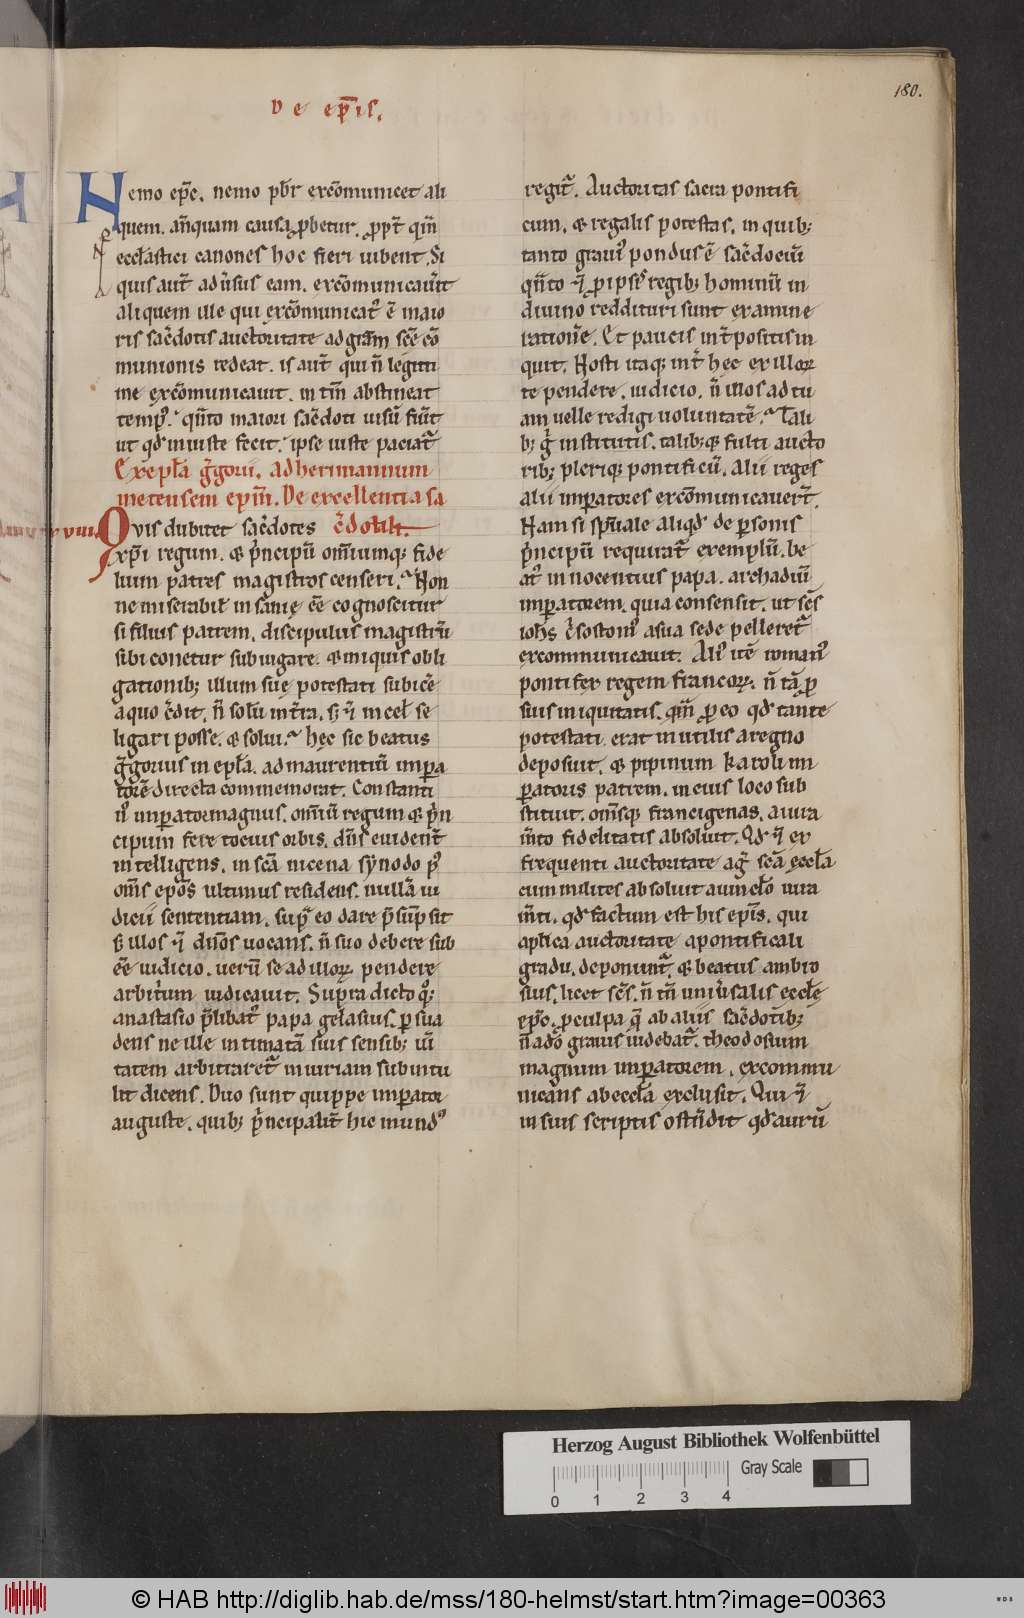 De ep̅is.
180.
Nemo ep̅c. nemo pb̅r excōmunicet ali
quem. an̅quam causa ꝓbetur. ꝓpt̅ qm̅
eccl̅astici canones hoc fieri iubent. Si
quis aut̅ adu̅sus eam. excōmunicau̅it
aliquem ille qui excōmunicatꝰ ē maio
ris sac̅dotis auctoritate ad gr̅am sc̅e cō
munionis redeat. is aut̅ qui n̅ legitti
me excōmunicauit. in tm̅ abstineat
tempꝰ. qn̅to maiori sac̅doti uisū fu̅it
ut qd̅ iniuste fecit. ipse iuste paciat̅
Ex epl̅a g̅gorii. ad herimannum
metensem epm̅. De excellentia sa
xviii.
Qvis dubitet sac̅dotes
c̅dotali.
xp̅i regum. & p̅ncipū om̅iumq; fide
lium patres magistros censeri. Non
ne miserabil̅ insanię ēe cognoscitur
si filius patrem. discipulus magistrū
sibi conetur subiugare. & iniquis obli
gationib; illum suę potestati subicē
a quo c̅dit. n̅ solū in t̅ra. s; & in cel̅ se
ligari posse. & solui. hęc sic beatus
g̅gorius in epl̅a. ad mauritiū impa
torē directa commemorat. Constanti
nꝰ imꝑator magnus. om̅iū regum & p̅n
cipum fere tocius orbis. dn̅s euident̅
intelligens. in sc̅a nicena synodo pꝰ
om̅s ep̅os ultimus residens. nullā iu
dicii sententiam. sup̅ eo dare p̅sūpsit
s; illos & deos uocans. n̅ suo debere sub
ēe iudicio. uerū se ad illoꝝ pendere
arbit̅um iudicauit. Supra dicto q°;
anastasio p̅libatꝰ papa gelasius. ꝑsua
dens ne ille intimatā suis sensib; ui̅
tatem arbitraret̅ iniuriam subintu
lit dicens. Duo sunt quippe imꝑator
auguste. quib; p̅ncipalit̅ hic mundꝰ
regit̅. Auctoritas sacra pontifi
cum. & regalis potestas. in quib;
tanto grauiꝰ pondus ē sac̅docū
qn̅to & ꝓ ipsis regib; hominū in
diuino reddituri sunt examine
rationē. Et paucis int̅positis in
quit. Nosti itaq; int̅ hec ex illoꝝ
te pendere. iudicio. n̅ illos ad tu
am uelle redigi uoluntatē. Tali
b; g̅ institutis. talib; & fulti aucto
rib; pleriq; pontificū. alii reges
alii imꝑatores excōmunicauert̅.
Nam si sp̅uale aliqd̅ de ꝑsonis
p̅ncipū requirat̅ exemplū. be
atꝰ innocentius papa. archadiū
imꝑatorem. quia consensit. ut sc̅s
ioh̅s c̅sostomꝰ a sua sede pelleret̅
excommunicauit. Aliꝰ itē romanꝰ
pontifex regem francoꝝ. n̅ tā ꝓ
suis iniquitatis. qm̅ ꝓ eo qd̅ tantę
potestati erat inutilis a regno
deposuit. & pipinum karoli im
ꝑatoris patrem. in eius loco sub
stituit. om̅sq; francigenas. a iura
m̅to fidelitatis absoluit. Qd̅ & ex
frequenti auctoritate agit̅ sc̅a ęccl̅a
cum milites absoluit a uinclo iura
m̅ti. qd̅ factum est his ep̅is. qui
apl̅ica auctoritate a pontificali
gradu. deponunt̅. & beatus ambro
sius. licet sc̅s. n̅ tn̅ uniu̅salis eccl̅ę
ep̅c. ꝓ culpa q̅ ab aliis sac̅dotib;
n̅ ado̅ grauis uidebat̅. theodosium
magnum imꝑatorem. excommu
nicans ab eccl̅a exclusit. Qui &
in suis scriptis ostn̅dit qd̅ aurū
Herzog August Bibliothek Wolfenbüttel
Gray Scale
0 1 2 3 4
© HAB http://diglib.hab.de/mss/180-helmst/start.htm?image=00363